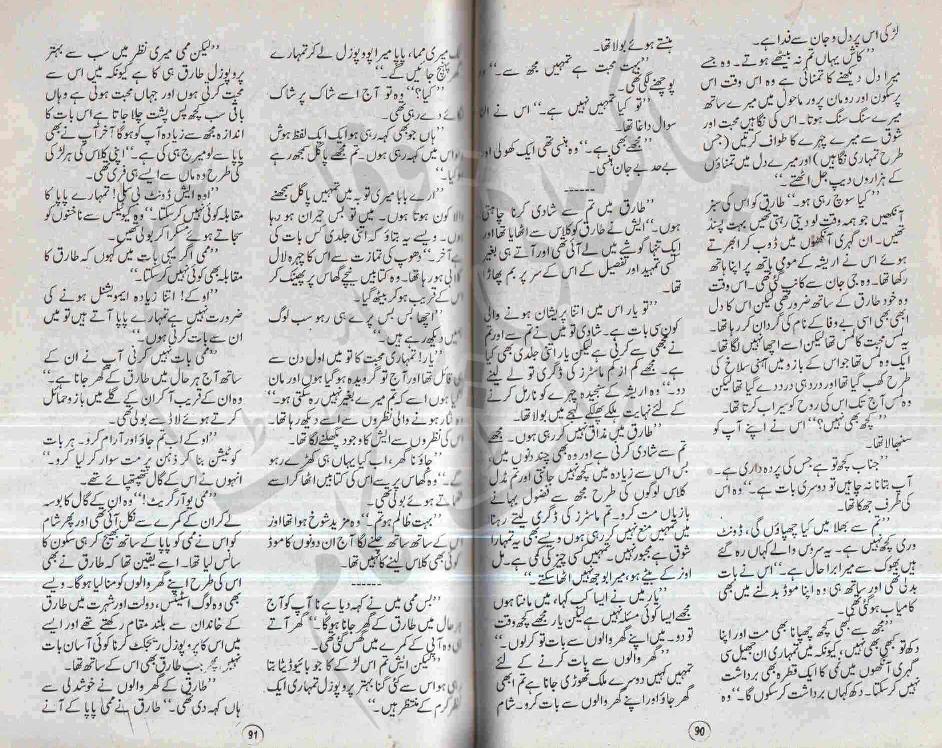 لڑکی اس پر دل و جان سے فدا ہے۔
’’کاش یہاں تم نہ بیٹھے ہوتے۔ وہ جسے
میرا دل دیکھنے کا تمنائی ہے وہ اس وقت اس
پرسکون اور رومان پرور ماحول میں میرے ساتھ
میرے سنگ سنگ ہوتا۔ اس کی نگاہیں محبت اور
شوق سے میرے چہرے کا طواف کرتیں (جس
طرح تمہاری نگاہیں) اور میرے دل میں تمناؤں
کے ہزاروں دیپ جل اٹھتے۔‘‘
’’کیا سوچ رہی ہو۔‘‘ طارق کو اس کی سبز
آنکھیں جو ہمہ وقت لو دیتی رہتی تھیں بہت پسند
تھیں۔ ان گہری آنکھوں میں ڈوب کر ابھرتے
ہوئے اس نے اریشہ کے مومی ہاتھ پر اپنا ہاتھ
رکھا تھا۔ وہ جی جان سے کانپ گئی تھی۔ اس وقت
وہ خود طارق کے ساتھ ضرور تھی لیکن اس کا دل
ابھی بھی اسی بے وفا کے نام کی گردان کر رہا تھا۔
یہ لمس محبت کا لمس تھا لیکن اسے اچھا نہیں لگا تھا۔
ایک وہ لمس تھا جو اس کے بازو میں آہنی سلاخ کی
طرح کھب گیا تھا اور درد ہی درد دے گیا تھا لیکن
وہ لمس آج تک اس کی روح کو سیراب کرتا تھا۔
’’کچھ بھی نہیں؟‘‘ اس نے اپنے آپ کو
سنبھالا تھا۔
’’جناب کچھ تو ہے جس کی پردہ داری ہے۔
آپ بتانا نہ چاہیں تو دوسری بات ہے۔‘‘ وہ اس
کی طرف جھکا تھا۔
’’تم سے بھلا میں کیا چھپاؤں گی، ڈونٹ
وری کچھ نہیں ہے۔ یہ سروس والے کہاں رہ گئے
ہیں بھوک سے میرا برا حال ہے۔‘‘ اس نے بات
بدلی تھی اور ساتھ ہی وہ اپنا موڈ بدلنے میں بھی
کامیاب ہو گئی تھی۔
’’مجھ سے کبھی کچھ چھپانا بھی مت اور اپنا
دکھ تو کبھی بھی نہیں، کیونکہ میں تمہاری ان جھیل سی
گہری آنکھوں میں نمی کا ایک قطرہ بھی برداشت
نہیں کر سکتا۔ دکھ کہاں برداشت کر سکوں گا۔‘‘ وہ
ہنستے ہوئے بولا تھا۔
’’بہت محبت ہے تمہیں مجھ سے۔‘‘ وہ
پوچھنے لگی تھی۔
’’تو کیا تمہیں نہیں ہے۔‘‘ اس نے الٹا
سوال داغا تھا۔
’’مجھے بھی ہے۔‘‘ وہ ہنسی تھی ایک کھوئی اور
بے حد بے جان ہنسی۔
------
’’طارق میں تم سے شادی کرنا چاہتی
تھیں۔‘‘ ایش نے طارق کو کلاس سے اٹھایا تھا اور
ایک تنہا گوشے میں لے آئی تھی اور آتے ہی بغیر
کسی تمہید اور تفصیل کے اس کے سر پر بم پھاڑا
تھا۔
’’تو یار اس میں اتنا پریشان ہونے والی
کون سی بات ہے۔ شادی تو میں نے تم سے اور تم
نے مجھی سے کرنی ہے لیکن یار اتنی جلدی بھی کیا
ہے۔ مجھے کم از کم ماسٹرز کی ڈگری تو لے لینے
دو۔‘‘ وہ اریشہ کے سنجیدہ چہرے کو نارمل کرنے
کے لئے نہایت ہلکے پھلکے لہجے میں بولا تھا۔
’’طارق میں مذاق نہیں کر رہی ہوں۔ مجھے
تم سے شادی کرنی ہے اور وہ بھی چند دنوں میں،
بس اس سے زیادہ میں کچھ نہیں جانتی اور تم مڈل
کلاس لوگوں کی طرح مجھ سے فضول بہانے
بازیاں مت کرو۔ تم ماسٹرز کی ڈگری لیتے رہنا
میں تمہیں منع نہیں کر رہی ہوں ویسے بھی یہ تمہارا
شوق ہے مجبور نہیں۔ تمہیں کسی چیز کی کمی ہے۔ مل
اونر کے بیٹے ہو، میرا بوجھ نہیں اٹھا سکتے۔‘‘
’’یار میں نے ایسا کب کہا، میں مانتا ہوں
مجھے ایسا کوئی مسئلہ نہیں ہے لیکن یار مجھے کچھ وقت
تو دو۔ میں اپنے گھر والوں سے بات تو کر لوں۔‘‘
’’گھر والوں سے بات کرنے کے لئے
تمہیں کہیں دوسرے ملک تھوڑی جانا ہے تم ابھی
گھر جاؤ اور اپنے گھر والوں سے بات کرو۔ شام
90
میری مما، پاپا میرا پروپوزل لے کر تمہارے
گھر پہنچ جائیں گے۔‘‘
’’کیا؟‘‘ وہ تو آج اسے شاک پر شاک
دے رہی تھی۔
’’ہاں جو بھی کہہ رہی ہوں ایک ایک لفظ ہوش
میں کہہ رہی ہوں۔ تم مجھے پاگل سمجھ رہے
’’ارے بابا میری توبہ میں تمہیں پاگل سمجھنے
والا کون ہوتا ہوں۔ میں تو بس حیران ہو رہا
ہوں۔ ویسے یہ بتاؤ کہ اتنی جلدی کس بات کی
ہے آخر۔‘‘ دھوپ کی تمازت سے اس کا چہرہ لال
ہو رہا تھا۔ وہ کتابیں نیچے گھاس پر پھینک کر
اس کے قریب ہو کر بیٹھ گیا۔
’’اچھا بس بس پرے ہی رہو سب لوگ
ہمیں دیکھ رہے ہیں۔‘‘
’’یار! تمہاری محبت کا تو میں اول دن سے
ہی قائل تھا اور آج تو گرویدہ ہو گیا ہوں اور مان
گیا ہوں اسے کہ تم میرے بغیر نہیں رہ سکتی ہو۔‘‘
نثار ہونے والی نظروں سے اسے دیکھ رہا تھا۔
اس کی نظروں سے ایش کا وجود پگھلنے لگا تھا۔
’’جاؤ نا گھر، اب کیا یہاں ہی کھڑے رہو
گے۔‘‘ وہ گھاس پر سے اس کی کتابیں اٹھا کر اسے
تھماتے ہوئے بولی تھی۔
’’بہت ظالم ہو تم۔‘‘ وہ مزید شوخ ہوا تھا اور
اس کے ساتھ ساتھ چلنے لگا آج ان دونوں کا موڈ
کوئی بھی کلاس لینے کا نہیں تھا۔
------
’’بس ممی میں نے کہہ دیا ہے نا آپ کو آج
ہر حال میں طارق کے گھر جانا ہو گا۔‘‘ گھر آتے
ہی وہ آنی کے کمرے میں گھس گئی تھی۔
’’لیکن ایش تم اس لڑکے کا جو بائیو ڈیٹا بتا
رہی ہو اس سے کئی گنا بہتر پروپوزل تمہاری ایک
نظر کرم کے منتظر ہیں۔‘‘
’’لیکن ممی میری نظر میں سب سے بہتر
پروپوزل طارق ہی کا ہے کیونکہ میں اس سے
محبت کرتی ہوں اور جہاں محبت ہوتی ہے وہاں
باقی سب کچھ پس پشت چلا جاتا ہے اس بات کا
اندازہ مجھ سے زیادہ آپ کو ہو گا آخر آپ نے بھی
پاپا سے لو میرج ہی کی ہے۔‘‘ اپنی کلاس کی ہر لڑکی
کی طرح وہ ماں سے ایسے ہی فری تھی۔
’’اوہ ایش ڈونٹ بی سلی! تمہارے پاپا کا
مقابلہ کوئی نہیں کر سکتا۔‘‘ وہ کیوٹیکس سے ناخنوں کو
سجاتے ہوئے مسکرا کر بولی تھیں۔
’’ممی آ کر یہی بات میں کہوں کہ طارق کا
مقابلہ بھی کوئی نہیں کر سکتا۔‘‘
’’اوکے! اتنا زیادہ ایموشنل ہونے کی
ضرورت نہیں ہے تمہارے پاپا آتے ہیں تو میں
ان سے بات کرتی ہوں۔‘‘
’’ممی بات نہیں کرنی آپ نے ان کے
ساتھ آج ہر حال میں طارق کے گھر جانا ہے۔‘‘
وہ ان کے قریب آ کر ان کے گلے میں بازو حمائل
کرتے ہوئے لاڈ سے بولی تھی۔
’’اوکے اب تم جاؤ اور آرام کرو۔ ہر بات
کو ٹینشن بنا کر ذہن پر مت سوار کر لیا کرو۔‘‘
انہوں نے اس کے گال تھپتھپائے تھے۔
’’ممی یو آر گریٹ!‘‘ وہ ان کے گال کا بوسہ
لے کر ان کے کمرے سے نکل آئی تھی اور پھر شام
کو اس نے ممی کو پاپا کے ساتھ بھیج کر ہی سکون کا
سانس لیا تھا۔ اسے یقین تھا کہ طارق نے بھی
اسی طرح اپنے گھر والوں کو منا لیا ہو گا۔ ویسے
بھی وہ لوگ اسٹیٹس، دولت اور شہرت میں طارق
کے خاندان سے بلند مقام رکھتے تھے اور ایسے
میں اس کا پروپوزل ریجیکٹ کرنا کوئی آسان بات
نہیں پھر جب طارق بھی اس کے ساتھ تھا۔
’’طارق کے گھر والوں نے خوشدلی سے
ہاں کہہ دی تھی۔‘‘ طارق نے ممی پاپا کے آنے
91